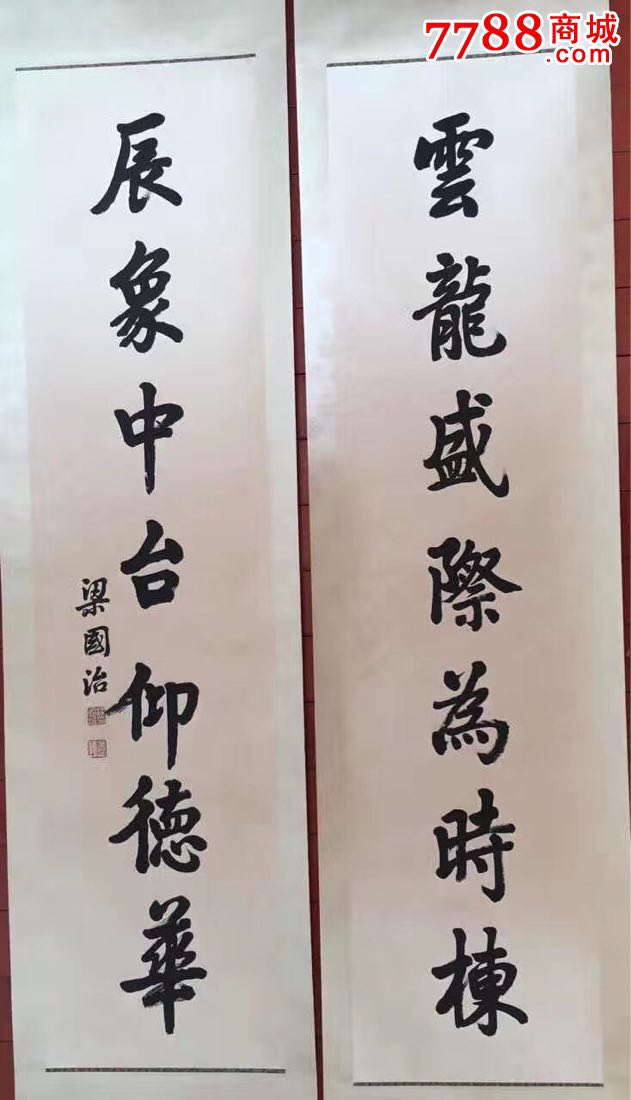 7788商城
.com
雲龍盛際為時棟
辰象中台仰德華
梁國治